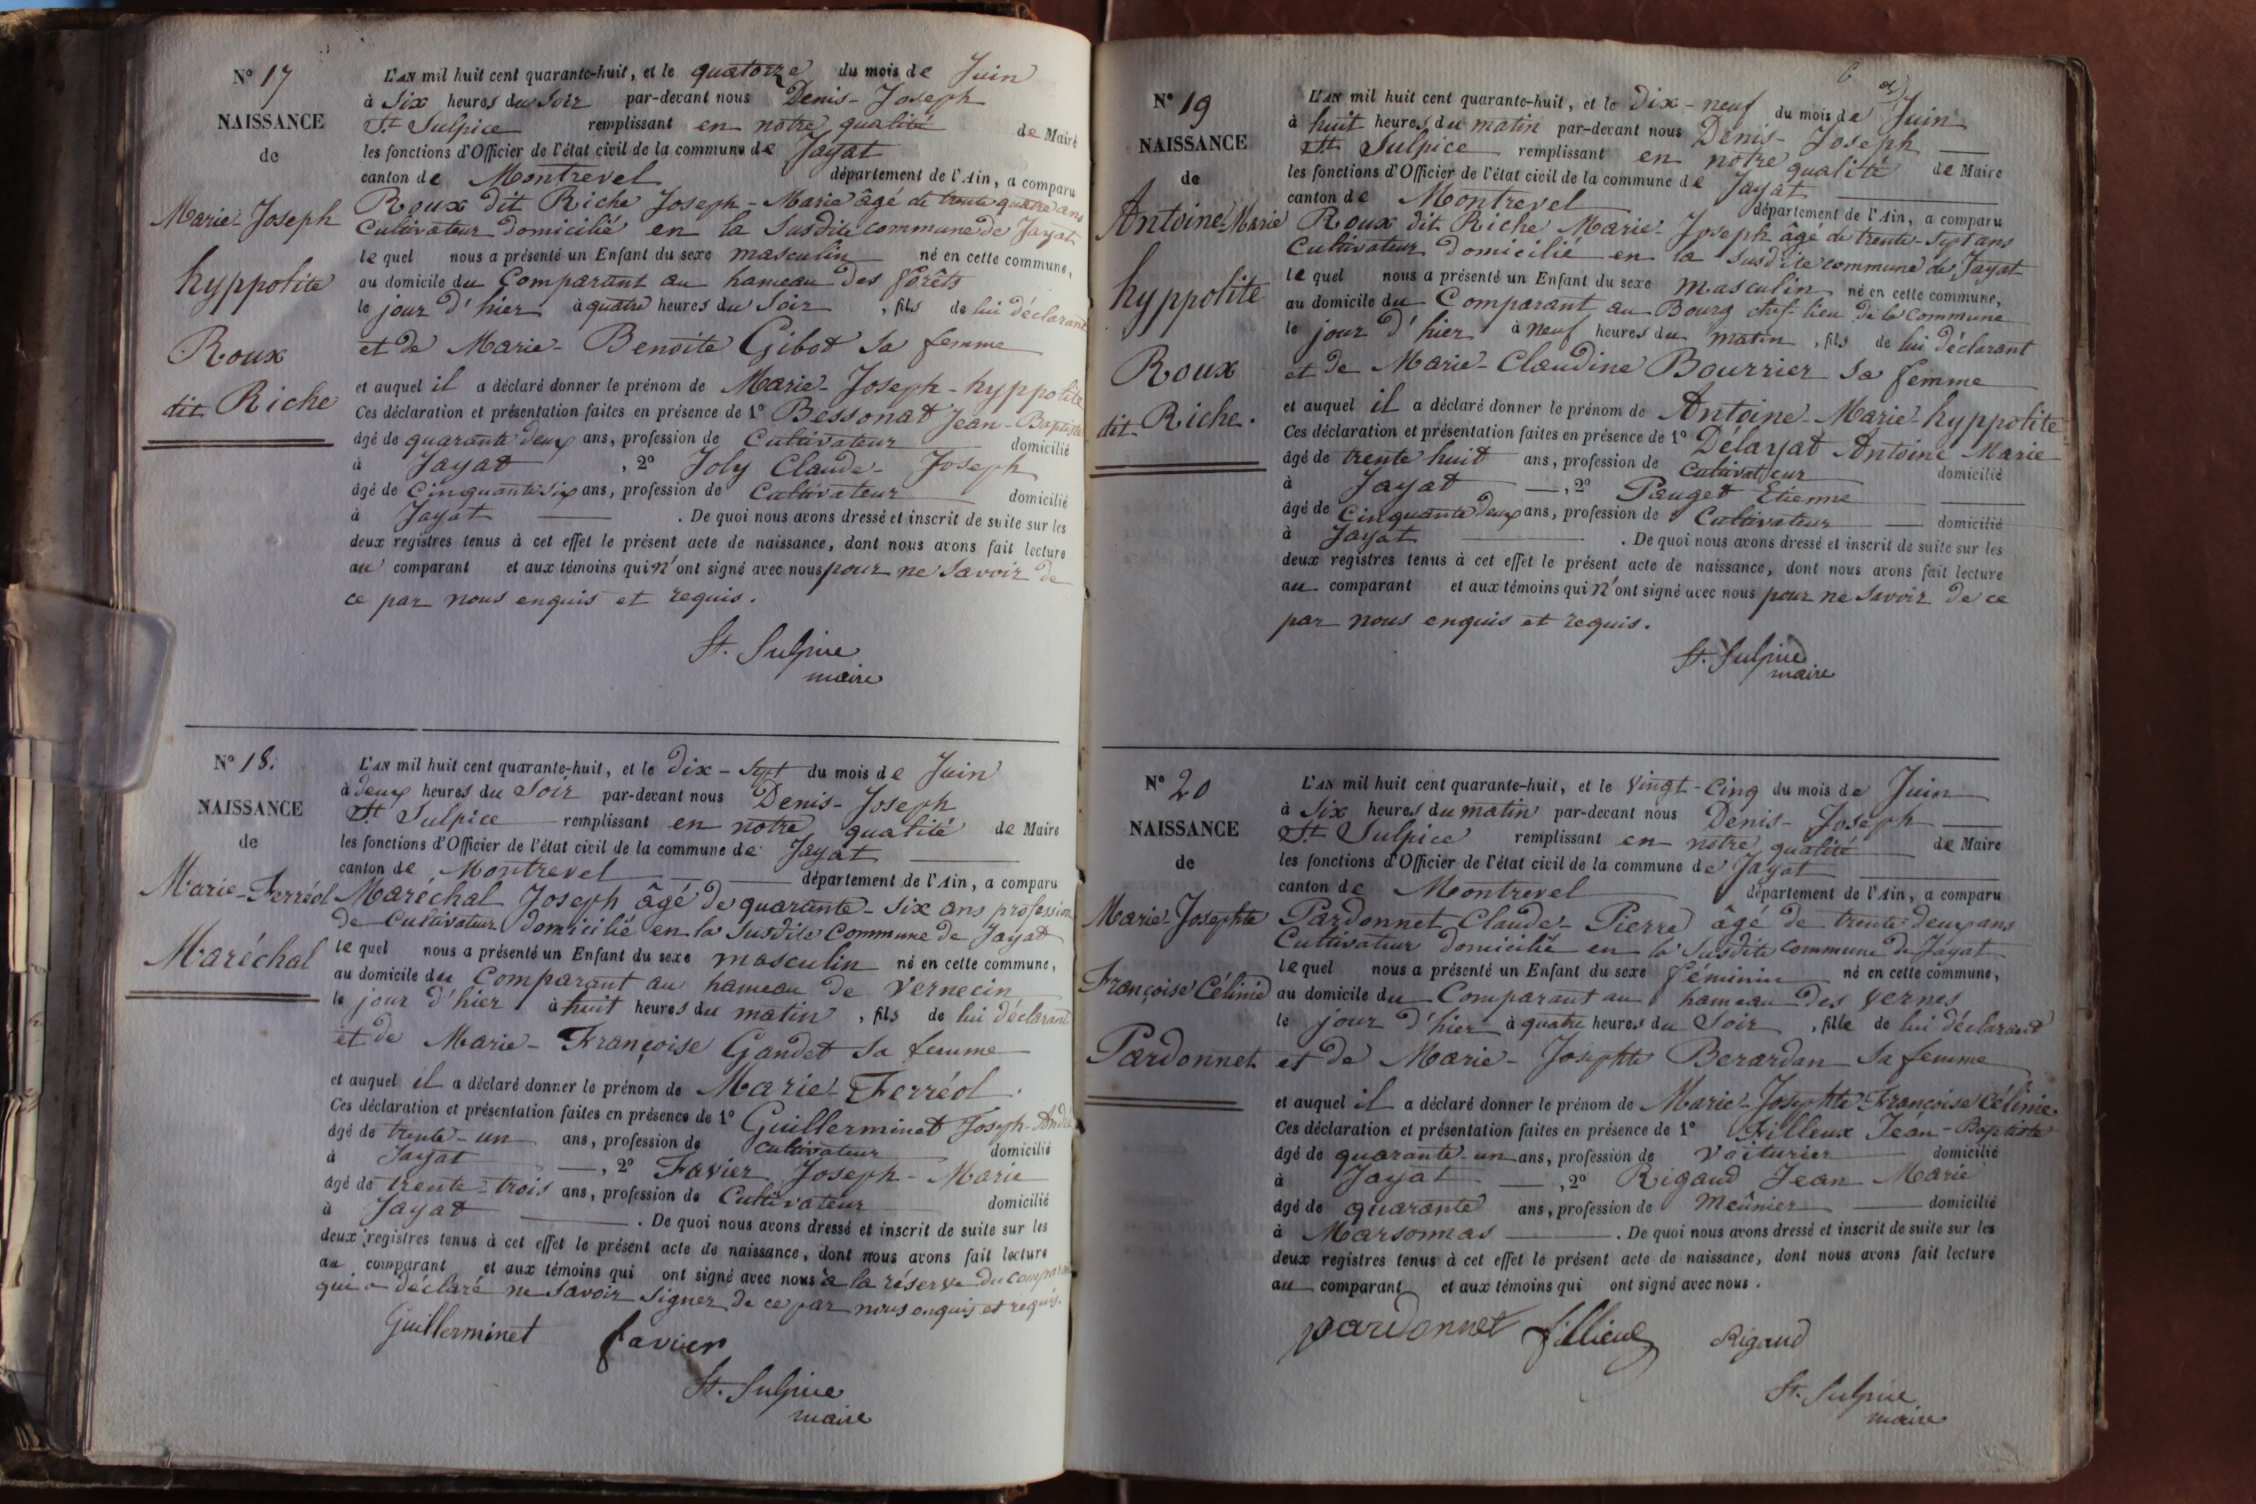 N° 17
NAISSANCE
de
Marie-Joseph
hyppolite
Roux
dit Riche
L'AN mil huit cent quarante-huit, et le quatorze du mois de Juin
à Six heures du Soir par-devant nous Denis-Joseph
St Sulpice remplissant en notre qualité de Maire
les fonctions d'Officier de l'état civil de la commune de Jayat
canton de Montrevel département de l'Ain, a comparu
Roux dit Riche Joseph-Marie âgé de trente quatre ans
Cultivateur domicilié en la Susdite commune de Jayat
lequel nous a présenté un Enfant du sexe masculin né en cette commune,
au domicile du Comparant au hameau des forêts
le jour d'hier à quatre heures du Soir, fils de lui déclarant
et de Marie-Benoite Gibot Sa femme
et auquel il a déclaré donner le prénom de Marie-Joseph-hyppolite
Ces déclaration et présentation faites en présence de 1° Bessonat Jean-Baptiste
âgé de quarante deux ans, profession de Cultivateur domicilié
à Jayat, 2° Joly Claude-Joseph
âgé de Cinquante six ans, profession de Cultivateur domicilié
à Jayat. De quoi nous avons dressé et inscrit de suite sur les
deux registres tenus à cet effet le présent acte de naissance, dont nous avons fait lecture
au comparant et aux témoins qui n'ont signé avec nous pour ne Savoir de
ce par nous enquis et requis.
St. Sulpice
maire
N° 18.
NAISSANCE
de
Marie-Ferréol
Maréchal
L'AN mil huit cent quarante-huit, et le dix-sept du mois de Juin
à deux heures du Soir par-devant nous Denis-Joseph
St Sulpice remplissant en notre qualité de Maire
les fonctions d'Officier de l'état civil de la commune de Jayat
canton de Montrevel département de l'Ain, a comparu
Maréchal Joseph âgé de quarante-six ans profession
de Cultivateur domicilié en la Susdite Commune de Jayat
lequel nous a présenté un Enfant du sexe masculin né en cette commune,
au domicile du Comparant au hameau de Vernecin
le jour d'hier à huit heures du matin, fils de lui déclarant
et de Marie-Françoise Gandet Sa femme
et auquel il a déclaré donner le prénom de Marie-Ferréol.
Ces déclaration et présentation faites en présence de 1° Guillerminet Joseph-André
âgé de trente-un ans, profession de Cultivateur domicilié
à Jayat, 2° Favier Joseph-Marie
âgé de trente-trois ans, profession de Cultivateur domicilié
à Jayat. De quoi nous avons dressé et inscrit de suite sur les
deux registres tenus à cet effet le présent acte de naissance, dont nous avons fait lecture
au comparant et aux témoins qui ont signé avec nous à la réserve du comparant
qui a déclaré ne Savoir Signer de ce par nous enquis et requis.
Guillerminet favier
St. Sulpice
maire
6
N° 19
NAISSANCE
de
Antoine-Marie
hyppolite
Roux
dit Riche.
L'AN mil huit cent quarante-huit, et le dix-neuf du mois de Juin
à huit heures du matin par-devant nous Denis-Joseph
St Sulpice remplissant en notre qualité de Maire
les fonctions d'Officier de l'état civil de la commune de Jayat
canton de Montrevel département de l'Ain, a comparu
Roux dit Riche Marie-Joseph âgé de trente-sept ans
Cultivateur domicilié en la Susdite commune de Jayat
lequel nous a présenté un Enfant du sexe masculin né en cette commune,
au domicile du Comparant au Bourg chef-lieu de la Commune
le jour d'hier à neuf heures du matin, fils de lui déclarant
et de Marie-Claudine Bourrier Sa femme
et auquel il a déclaré donner le prénom de Antoine-Marie-hyppolite
Ces déclaration et présentation faites en présence de 1° Délayat Antoine Marie
âgé de trente huit ans, profession de Cultivateur domicilié
à Jayat, 2° Pauget Etienne
âgé de Cinquante deux ans, profession de Cultivateur domicilié
à Jayat. De quoi nous avons dressé et inscrit de suite sur les
deux registres tenus à cet effet le présent acte de naissance, dont nous avons fait lecture
au comparant et aux témoins qui n'ont signé avec nous pour ne Savoir de ce
par nous enquis et requis.
St. Sulpice
maire
N° 20
NAISSANCE
de
Marie-Josephte
Françoise Célinie
Pardonnet
L'AN mil huit cent quarante-huit, et le Vingt-Cinq du mois de Juin
à Six heures du matin par-devant nous Denis-Joseph
St Sulpice remplissant en notre qualité de Maire
les fonctions d'Officier de l'état civil de la commune de Jayat
canton de Montrevel département de l'Ain, a comparu
Pardonnet Claude-Pierre âgé de trente deux ans
Cultivateur domicilié en la Susdite commune de Jayat
lequel nous a présenté un Enfant du sexe féminin né en cette commune,
au domicile du Comparant au hameau des Vernes
le jour d'hier à quatre heures du Soir, fille de lui déclarant
et de Marie-Josephte Berardan Sa femme
et auquel il a déclaré donner le prénom de Marie-Josephte Françoise Célinie
Ces déclaration et présentation faites en présence de 1° Filleux Jean-Baptiste
âgé de quarante-un ans, profession de Voiturier domicilié
à Jayat, 2° Rigaud Jean Marie
âgé de quarante ans, profession de Meûnier domicilié
à Marsonnas. De quoi nous avons dressé et inscrit de suite sur les
deux registres tenus à cet effet le présent acte de naissance, dont nous avons fait lecture
au comparant et aux témoins qui ont signé avec nous.
pardonnet fillieux Rigaud
St. Sulpice
maire